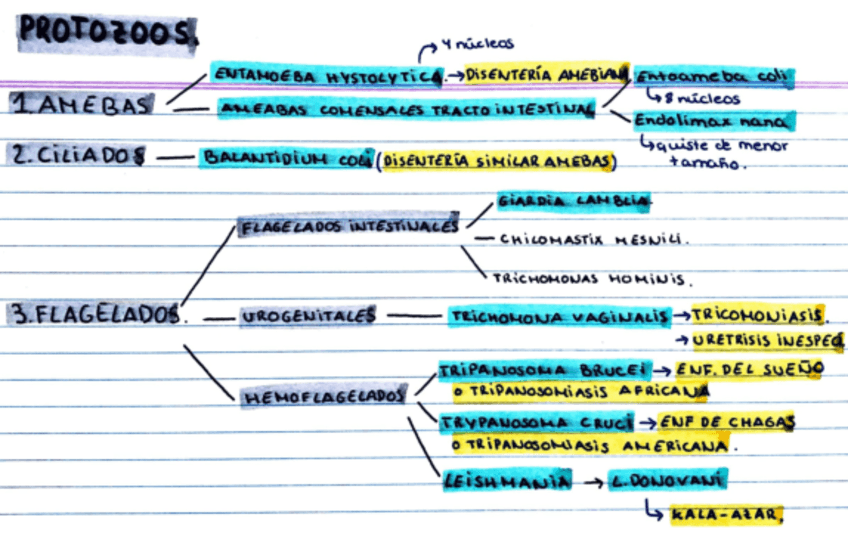 PROTOZOOS.
4 núcleos
ENTAMOEBA HYSTOLYTICA. → DISENTERÍA AMEBIANA
1. AMEBAS
AMEABAS COMENSALES TRACTO INTESTINAL
Entoameba coli
↳ 8 núcleos
Endolimax nana
↳ quiste de menor
tamaño.
2. CILIADOS — BALANTIDIUM COLI (DISENTERÍA SIMILAR AMEBAS)
GIARDIA LAMBLIA.
FLAGELADOS INTESTINALES
CHILOMASTIX MESNILI.
TRICHOMONAS HOMINIS.
3. FLAGELADOS.
UROGENITALES — TRICHOMONA VAGINALIS → TRICOMONIASIS.
→ URETRISIS INESPEC
TRIPANOSOMA BRUCEI → ENF. DEL SUEÑO
O TRIPANOSOMIASIS AFRICANA
HEMOFLAGELADOS
TRYPANOSOMA CRUCI → ENF DE CHAGAS
O TRIPANOSOMIASIS AMERICANA.
LEISHMANIA → L. DONOVANI
↳ KALA-AZAR.